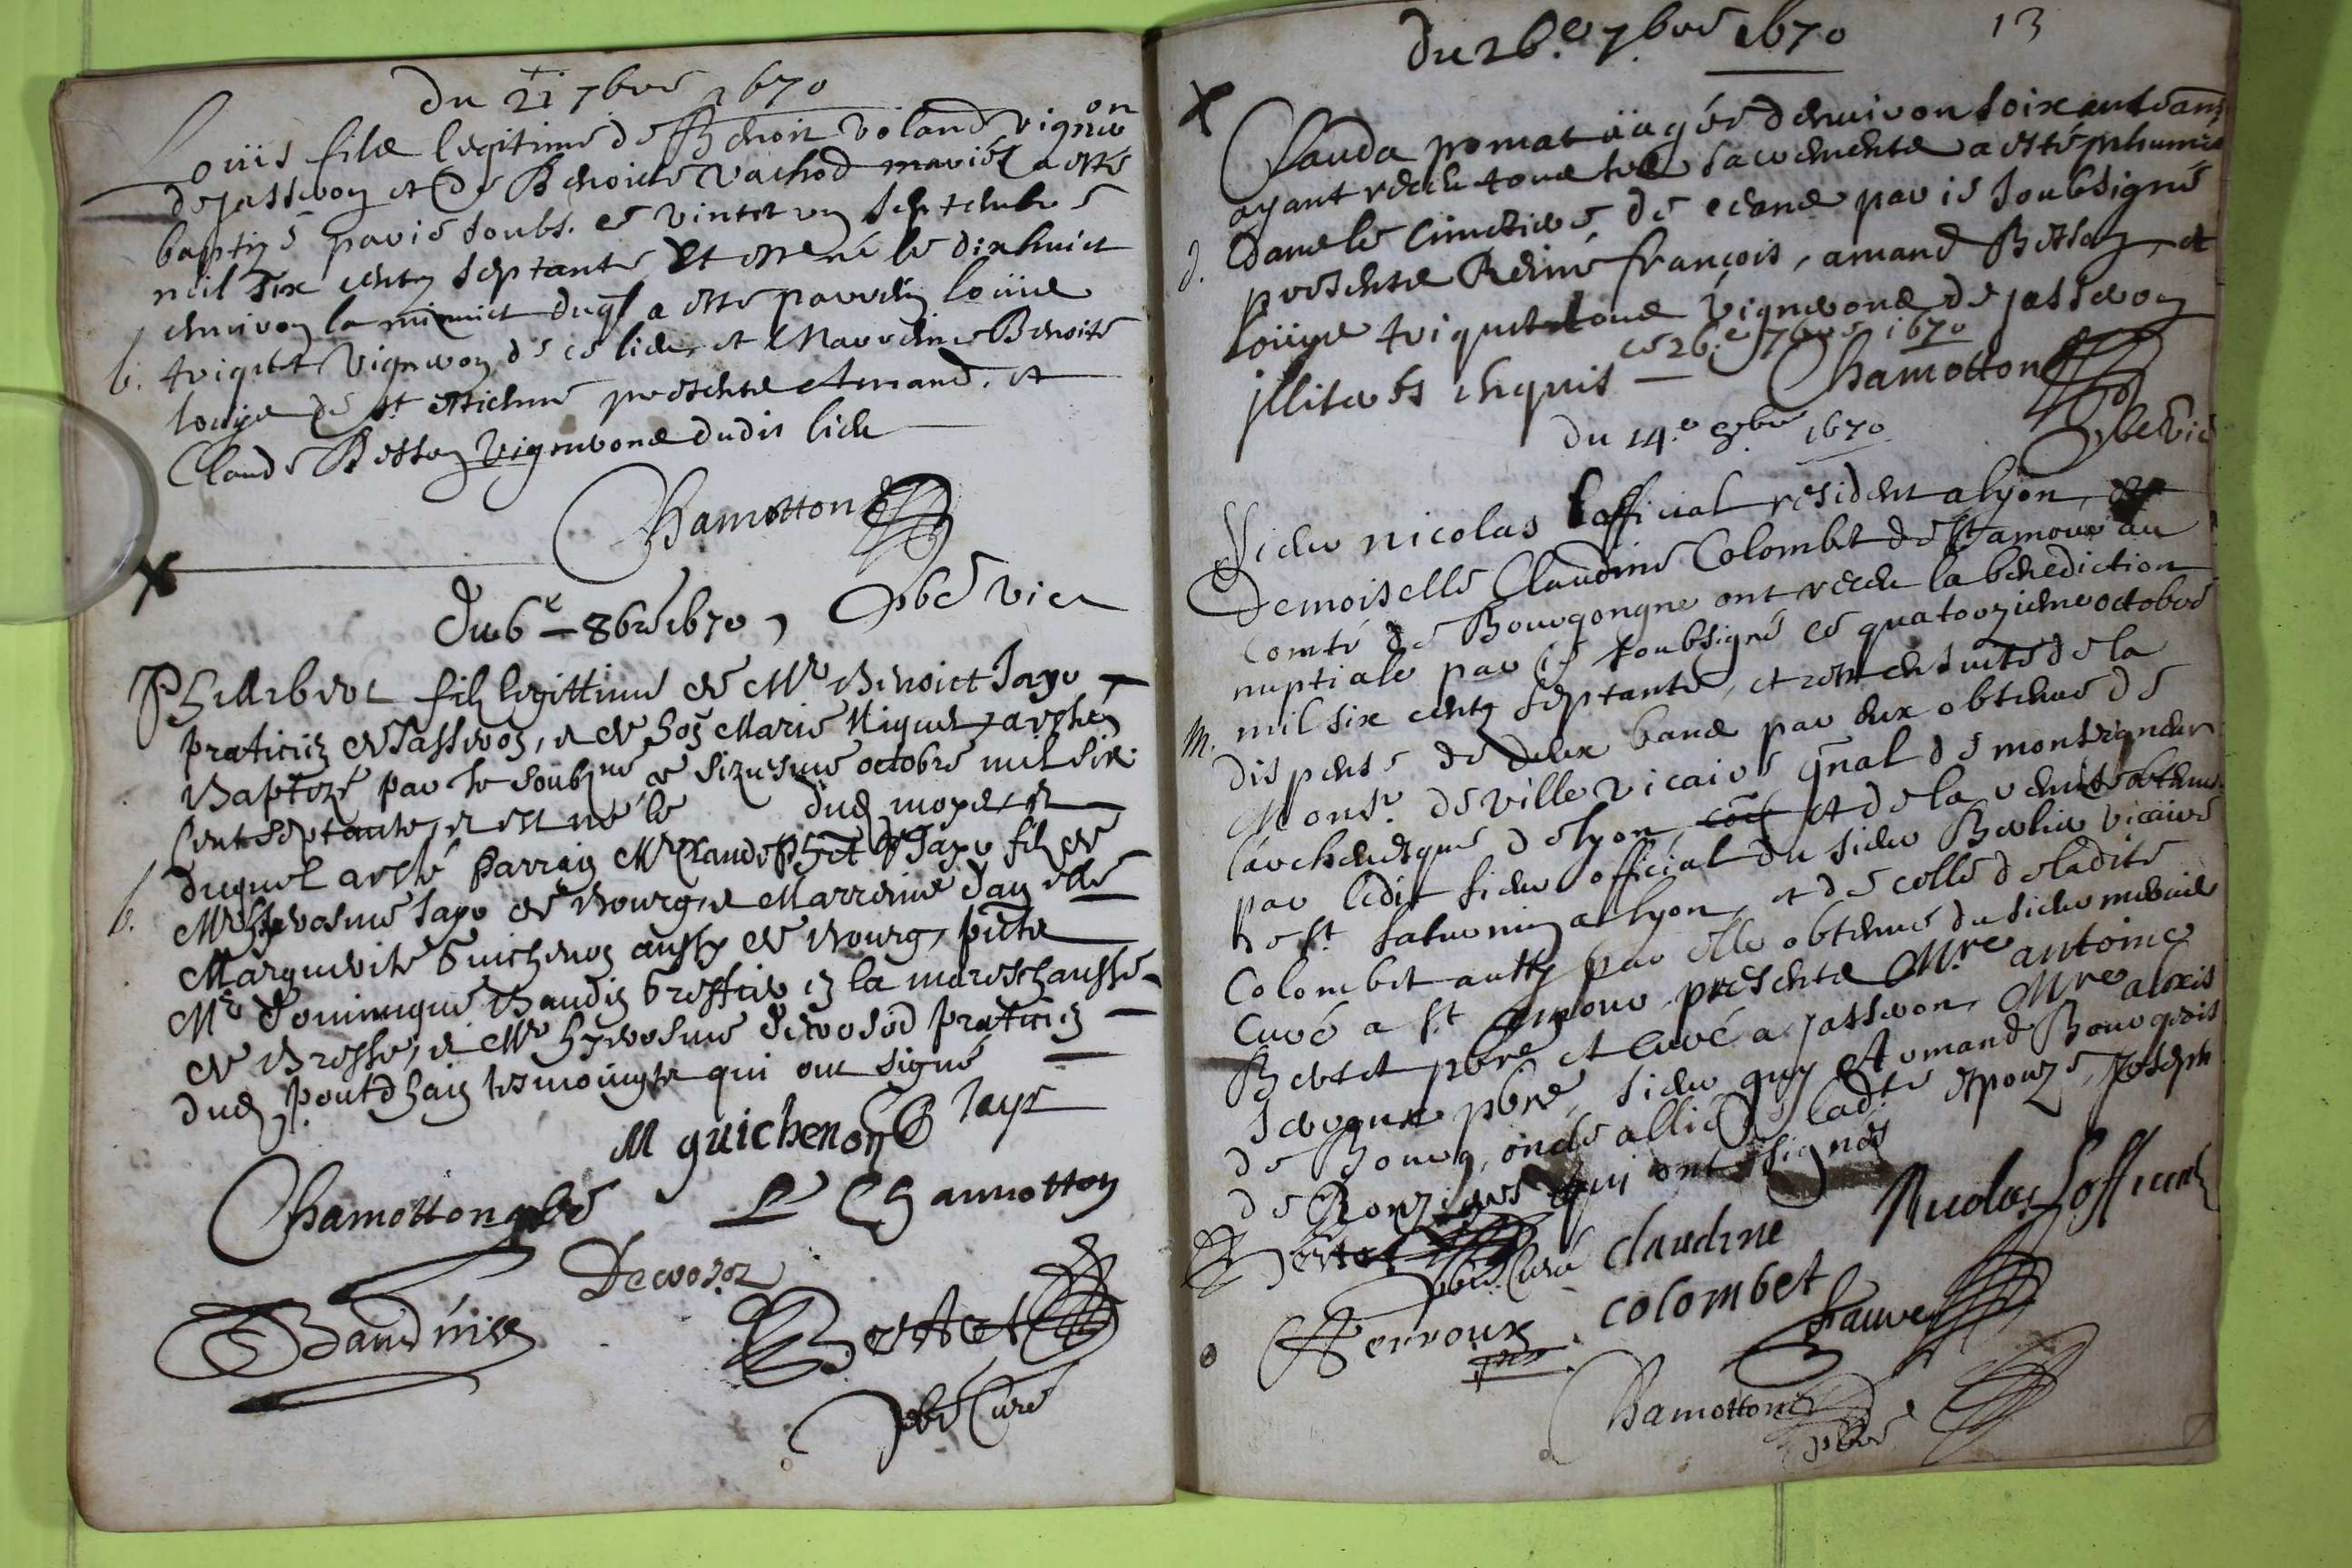 du 21 7bre 1670
Louis filz legitime de Benoit Voland vigneron
de Jasseron et de Benoite Vachod mariés a esté
baptizé par ie soubs. ce vintet un septembre
mil six centz septante et est né le dixhuict
environ la minuict duql a esté parrein Louis
b. triquet vigneron de ce lieu et Marreine Benoite
Louise de St Estienne presentz Amand et
Claude Besson vignerons dudit lieu
Chamotton
pbre vic
Du 6e - 8bre 1670
Philibert filz legittime de Mr Benoict Jayr
praticien de Jasseron, et de hon Marie Niguet a esté
Baptizé par le soubzné ce siziesme octobre mil six
cent septante, et est né le dud moys, et
b. duquel a esté parrain Mr Claude Jayr filz de
Mr Hierosme Jayr de Bourg, et Marreine dam elle
Marguerite Guichenon aussy de Bourg, pntz
Mr Dominique Baudin greffier en la mareschaussé
de Bresse, et Mr Hyerosme praticien
dud Pontdhain tesmoingtz qui ont signé
M guichenon Jayr
Chamotton pbre
Chamotton
Bertet
pbre Curé
du 26e 7bre 1670
13
Clauda pomat aagée denviron soixante ans
ayant receu tous ses sacrementz a esté inhumée
d. dans le cimetiere de ceans par ie soubsigné
presentz Reimé françois, amand Besson, et
Louys triquet tous vignerons de Jasseron
ce 26e 7bre 1670
illiterés enquis
Chamotton
pbre vic
du 14e 8bre 1670
Sieur nicolas Lofficial resident a lyon, et
Demoiselle Claudine Colombet de St amour au
Comté de Bourgongne ont receu la benediction
nuptiale par ie soubsigné ce quatorzieme octobre
m. mil six centz septante, et ce en suite de la
dispense de deux bans par eux obtenue de
Monsr. deville vicaire gnal de monseigneur
larchevesque de lyon, et de la remise obtenue
par ledit sieur official du sieur vicaire
de St. saturnin a lyon, et de celle de ladite
Colombet aussy par elle obtenue du sieur
Curé a St amour presentz Mre antoine
Bertet pbre et curé a Jasseron, Mre alexis
pbre, sieur guy Armand Bourgeois
de Bourg, oncle allié de ladte espouze, Joseph
de qui ont signés
Bertet
pbre Curé
claudine
colombet
Nicolas Lofficial
Perroux
Chamotton
pbre